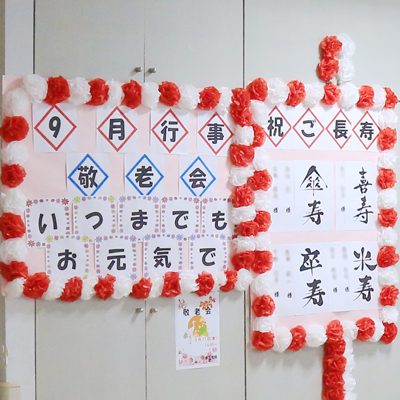 9月行事
敬老会
いつまでも
お元気で
祝ご長寿
傘寿
様
様
喜寿
様
卒寿
様
様
米寿
様
敬老会